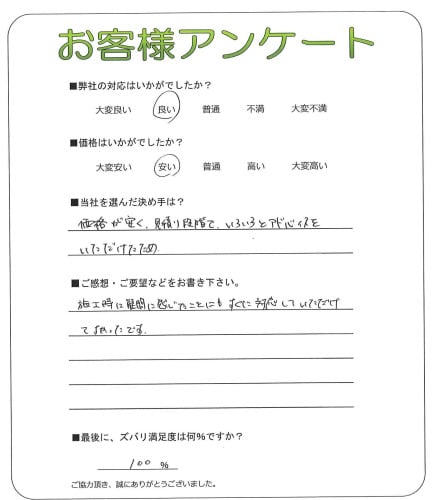 お客様アンケート
■弊社の対応はいかがでしたか?
大変良い 良い 普通 不満 大変不満
■価格はいかがでしたか?
大変安い 安い 普通 高い 大変高い
■当社を選んだ決め手は?
価格が安く、見積り段階で、いろいろとアドバイスを
いただけたため
■ご感想・ご要望などをお書き下さい。
施工時に疑問に感じたことにもすぐに対応していただけ
て良かったです。
■最後に、ズバリ満足度は何%ですか?
100 %
ご協力頂き、誠にありがとうございました。